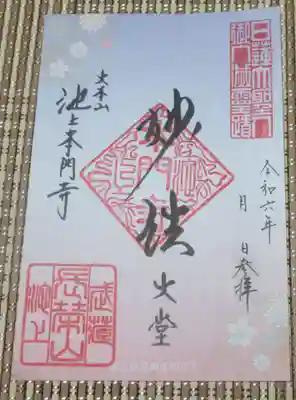 日蓮大聖人
御入滅聖蹟
令和六年
月 日参拝
妙法
大堂
大本山
池上本門寺
武蔵
長榮山
池上